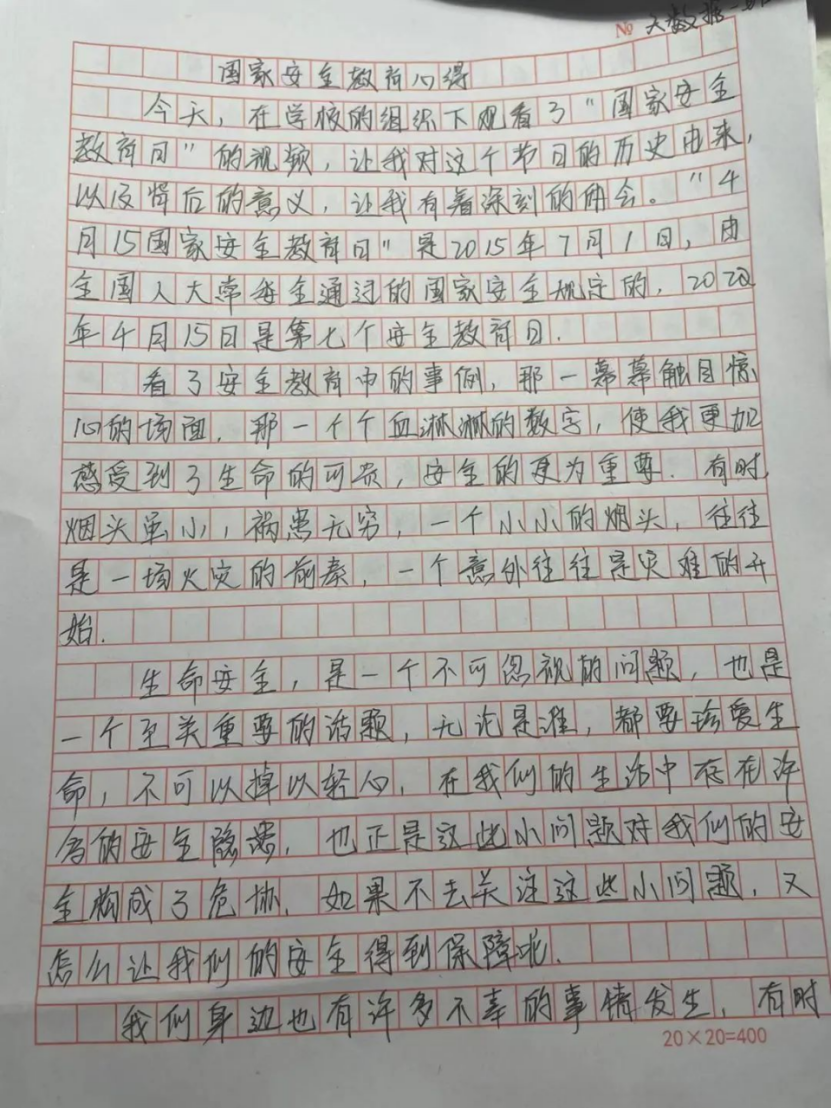 № 大数据一班
国家安全教育心得
今天，在学校的组织下观看了“国家安全
教育日”的视频，让我对这个节日的历史由来，
以及背后的意义，让我有着深刻的体会。“4
月15国家安全教育日”是2015年7月1日，由
全国人大常委会通过的国家安全规定的，2022
年4月15日是第七个安全教育日.
看了安全教育中的事例，那一幕幕触目惊
心的场面，那一个个血淋淋的数字，使我更加
感受到了生命的可贵，安全的更为重要．有时，
烟头虽小，祸患无穷，一个小小的烟头，往往
是一场火灾的前奏，一个意外往往是灾难的开
始.
生命安全，是一个不可忽视的问题，也是
一个至关重要的话题，无论是谁，都要珍爱生
命，不可以掉以轻心，在我们的生活中存在许
多的安全隐患，也正是这些小问题对我们的安
全构成了危协．如果不去关注这些小问题，又
怎么让我们的安全得到保障呢．
我们身边也有许多不幸的事情发生，有时
20×20=400